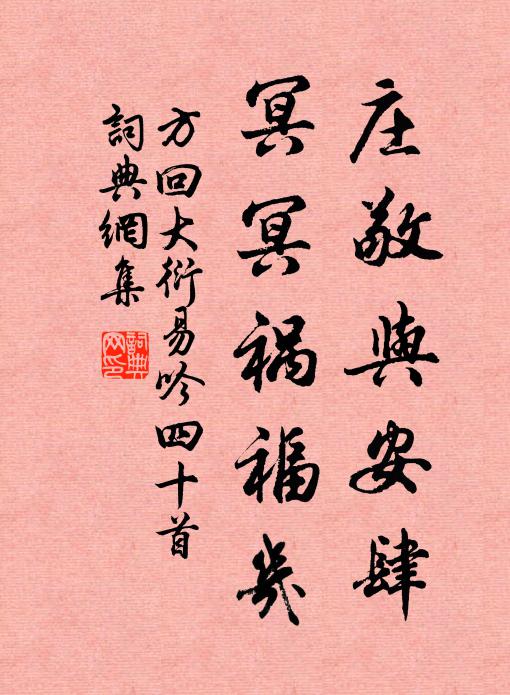 庄敬與安肆
冥冥祸福岁
方回大衍易吟四十首
詞典網集
詞典
网印